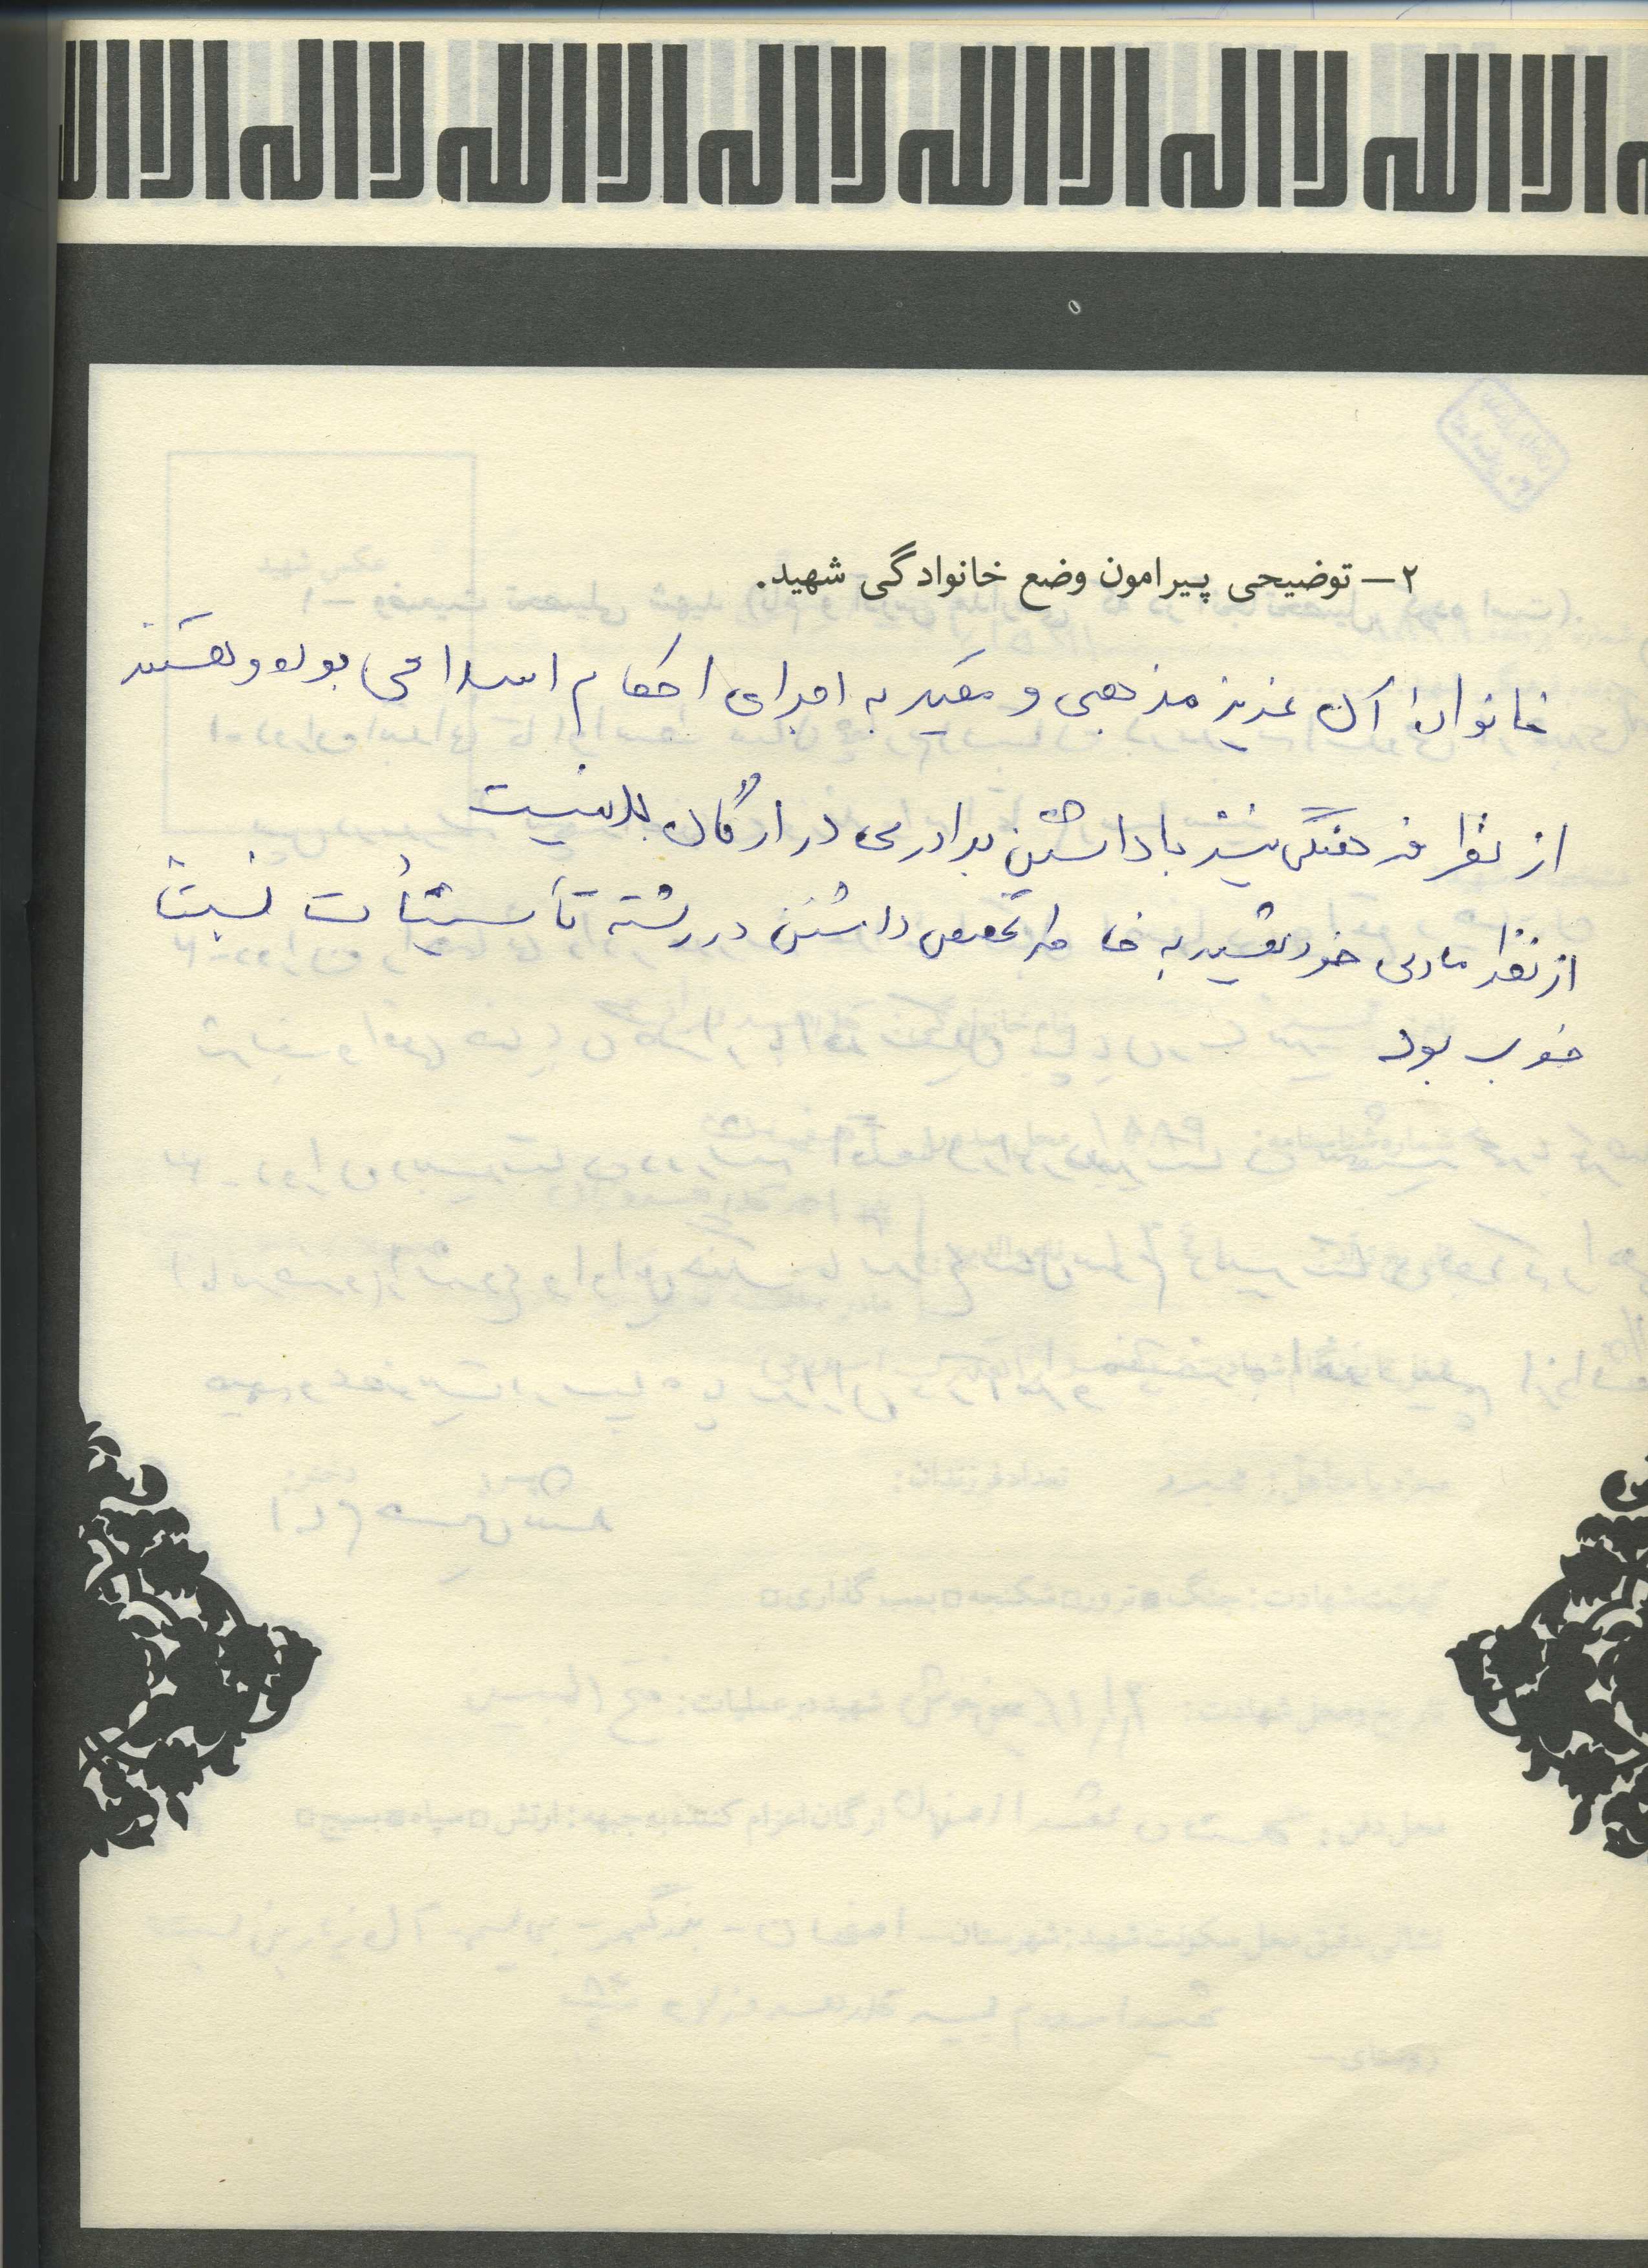 لا اله الا الله لا اله الا الله لا اله الا الله
۲- توضیحی پیرامون وضع خانوادگی شهید.
خانواده آن عزیز مذهبی و مقید به اجرای احکام اسلامی بوده و هستند
از نظر فرهنگی نیز با داشتن برادری در ارگان
از نظر مادی خود شهید به خاطر تخصص داشتن در رشته تأسیسات نسبتاً
خوب بود